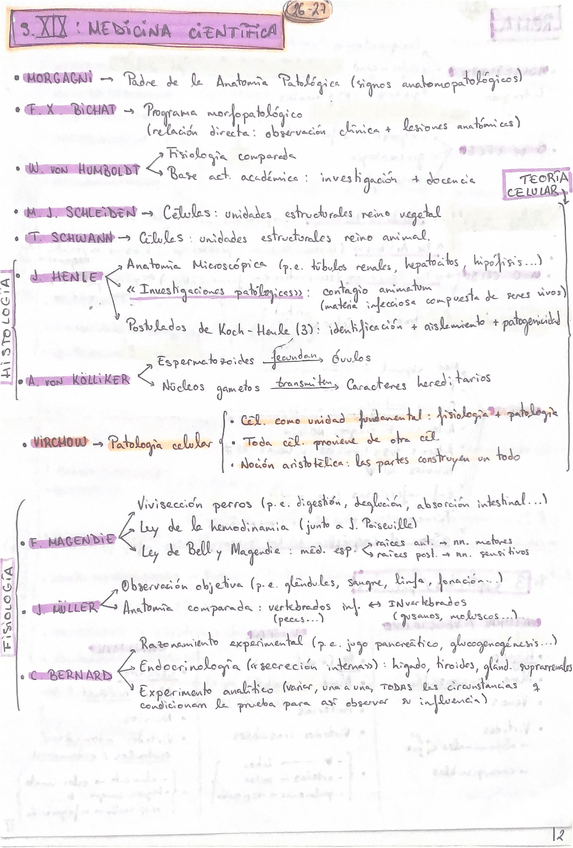 16-27
S. XIX: MEDICINA CIENTÍFICA
• MORGAGNI → Padre de la Anatomía Patológica (signos anatomopatológicos)
• F. X. BICHAT → Programa morfopatológico
(relación directa: observación clínica + lesiones anatómicas)
• W. VON HUMBOLDT
Fisiología comparada
Base act. académica: investigación + docencia
TEORÍA
CELULAR
• M. J. SCHLEIDEN → Células: unidades estructurales reino vegetal
• T. SCHWANN → Células: unidades estructurales reino animal
HISTOLOGÍA
• J. HENLE
Anatomía Microscópica (p.e. túbulos renales, hepatocitos, hipófisis...)
«Investigaciones patológicas»: contagio animatum
(materia infecciosa compuesta de seres vivos)
Postulados de Koch-Henle (3): identificación + aislamiento + patogenicidad
• A. VON KÖLLIKER
Espermatozoides fecundan → óvulos
Núcleos gametos transmiten → Caracteres hereditarios
• VIRCHOW → Patología celular
• Cél. como unidad fundamental: fisiología + patología
• Toda cél. proviene de otra cél.
• Noción aristotélica: las partes construyen un todo
FISIOLOGÍA
• F. MAGENDIE
Vivisección perros (p.e. digestión, deglución, absorción intestinal...)
Ley de la hemodinamia (junto a J. Poiseville)
Ley de Bell y Magendie: méd. esp. → raíces ant. → nn. motores
→ raíces post. → nn. sensitivos
• J. MÜLLER
Observación objetiva (p.e. glándulas, sangre, linfa, fonación...)
Anatomía comparada: vertebrados inf. ↔ INvertebrados
(peces...) (gusanos, moluscos...)
• C. BERNARD
Razonamiento experimental (p.e. jugo pancreático, glucogenogénesis...)
Endocrinología («secreción interna»): hígado, tiroides, gland. suprarrenales
Experimento analítico (variar, una a una, TODAS las circunstancias q
condicionan la prueba para así observar su influencia)
12